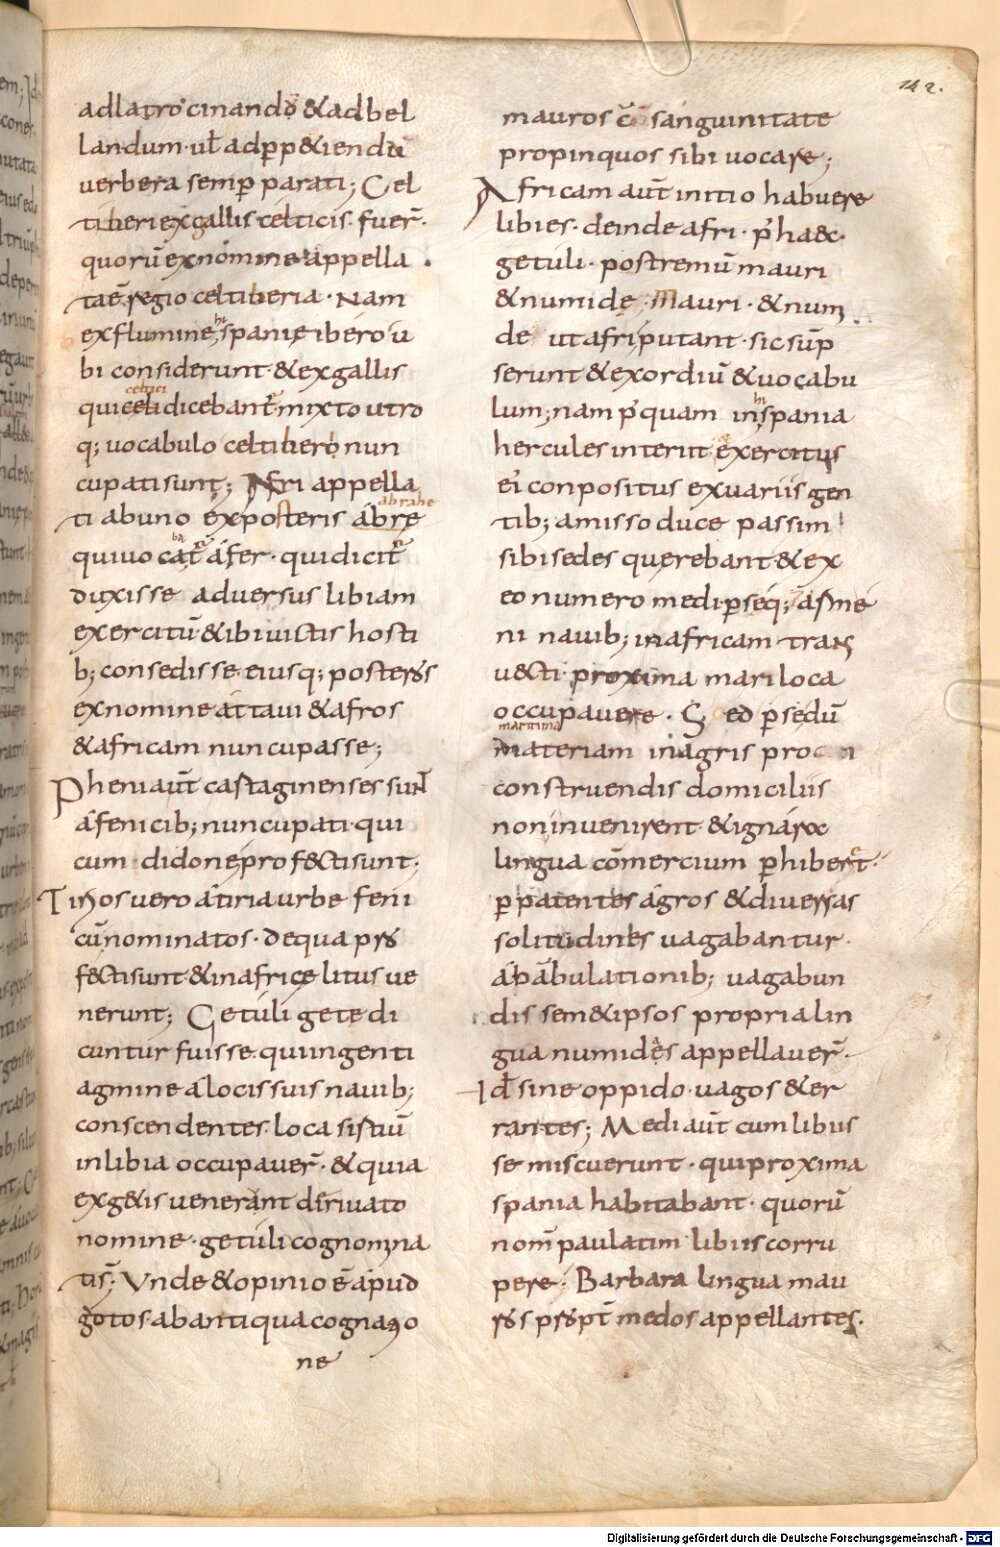 142.
adlatrocinando &adbel
landum·ul̄ adꝑp&iendū
uerbera semꝑ parati; Cel
tiberi exgallis celticis· fuer̄·
quorū exnomine appella
taē regio celtiberia· Nam
exflumine spanię ibero u
hi
bi considerunt·&exgallis
celtici
quicelti dicebant̄·mixto utro
q; uocabulo celtiberi nun
cupati sunt; Afri appella
ti abuno exposteris abrę
abrahe
quiuocat̄ afer· quidicit̄
ba
duxisse aduersus libiam
exercitū·&ibi uictis hosti
b; consedisse·eiusq; posteros
exnomine attaui &afros
&africam nuncupasse;
Pheni aūt castaginenses sun̄
afenicib; nuncupati·qui
cum didone profectisunt;
Tirios uero atiria urbe feni
cū nominatos· dequa pro
fectisunt·&inafricę litus ue
nerunt; Getuli gete di
cuntur fuisse·quiingenti
agmine alocis suis nauib;
conscendentes·loca sistiū
inlibia occupauer̄·&quia
exg&is uenerant deriuato
nomine·getuli cognomina
tis̄· Vnde &opinio ē apud
gotos·abantiqua cognatio
ne
mauros c̄ sanguinitate
propinquos sibi uocare;
Africam aūt initio habuere
libies· deinde afri· p̄ haec·
getuli· postremū mauri
&numidę; Mauri·&numi
de ut afri putant·sic sūp
serunt &exordiū &uocabu
lum; nam p̄quam inspania
hi
hercules interiit·exercitus
ei conpositus exuariis gen
tib; amisso duce passim
sibi sedes querebant·&ex
eo numero medi ꝑseq; armę
ni nauib; inafricam trans
uecti· proxima mari loca
occupauere· Sed ꝑse dū
maritima
materiam inagris
construendis domiciliis
noninuenirent·&ignaro
lingua cōmercium ꝑhiber&·
ꝑpatentes agros &diuersas
solitudines uagabantur·
abābulationib; uagabun
dis sem&ipsos propria lin
gua numides appellauer̄·
Id·sine oppido·uagos &er
rantes; Medi aūt cum libiis
se miscuerunt·qui proxima
spania habitabant· quorū
nom̄ paulatim libiis corru
pere· Barbara lingua mau
ros propt̄ medos appellantes·
Digitalisierung gefördert durch die Deutsche Forschungsgemeinschaft - DFG